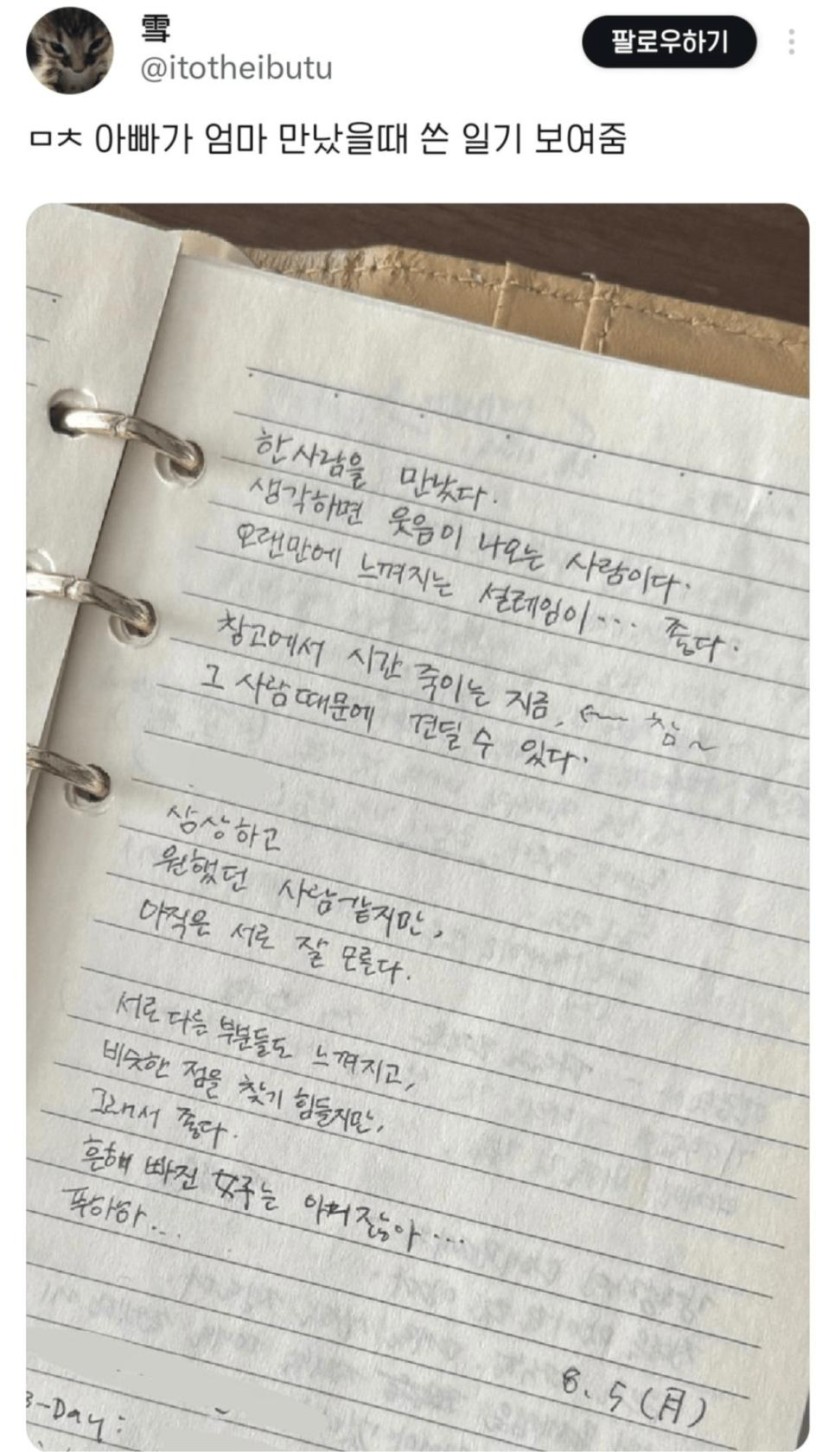 雪
@itotheibutu
팔로우하기
ㅁㅊ 아빠가 엄마 만났을때 쓴 일기 보여줌
한사람을 만났다.
생각하면 웃음이 나오는 사람이다.
오랜만에 느껴지는 설레임이… 좋다.
창고에서 시간 죽이는 지금, ← 참~
그 사람때문에 견딜 수 있다.
상상하고
원했던 사람같지만,
아직은 서로 잘 모른다.
서로 다른 부분들도 느껴지고,
비슷한 점을 찾기 힘들지만,
그래서 좋다.
흔해 빠진 女子는 아니잖아…
푸하하…
8. 5 (月)
-Day: